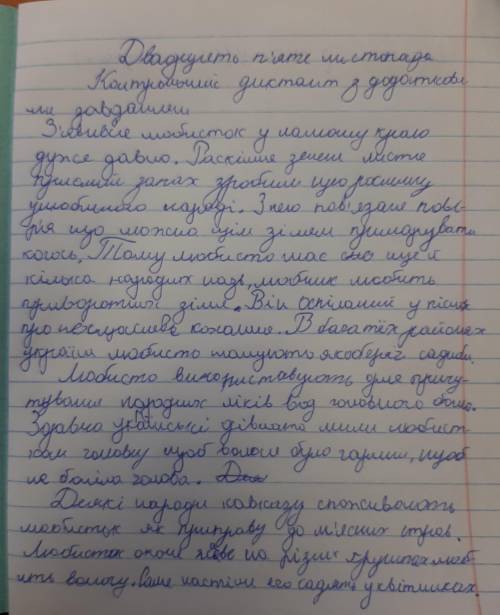 Двадцять п'яте листопада
Контрольний диктант з додаткови
ми завданнями
З'явився любисток у нашому краю
дуже давно. Розкішне зелене листя
приємний запах зробили цю рослину
улюбленою народі. З нею пов'язане пові-
р'я що можна цім зіллєм причарувати
когось, Тому любисто має ще й
кілька народних назв, любчик любить
приворотний зілля. Він оспіваний у пісня
про нещасливе кохання. В багатьїх районах
україни любисто шанують якоберіг садиби.
Любисто використавують для пригу-
тування народних ліків вод головного болю.
Здавна українські дівчата мили любист
ком головку щоб волося було гарним, щоб
не боліла голова.
Деякі народи кавказу споживають
любисток як приправу до м'ясних страв.
Любисток охоче живе на різних грунтах люб
ить вологу. Селяни його садять у квітниках.